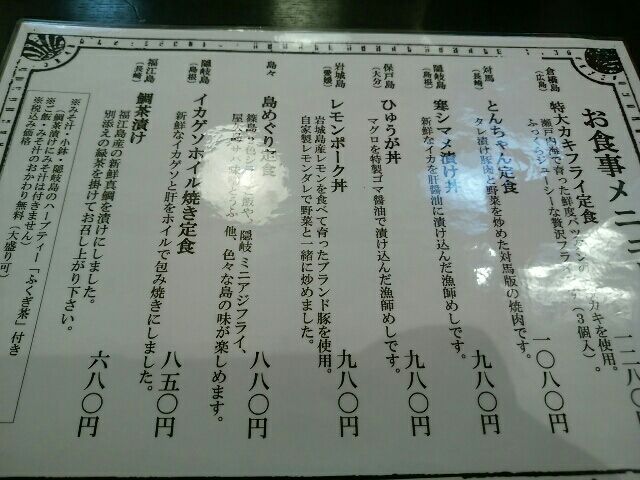 お食事メニュ
倉橋島
（広島）
特大カキフライ定食
瀬戸内海で育った鮮度バツグンの カキを使用。
ふっくらジューシーな贅沢フライ です（3個入）。
一二八〇円
一〇八〇円
対馬
（長崎）
とんちゃん定食
タレ漬け豚肉と野菜を炒めた対馬版の焼肉です。
九八〇円
隠岐島
（島根）
寒シマメ漬け丼
新鮮なイカを肝醤油に漬け込んだ漁師めしです。
九八〇円
保戸島
（大分）
ひゅうが丼
マグロを特製ゴマ醤油で漬け込んだ漁師めしです。
九八〇円
岩城島
（愛媛）
レモンポーク丼
岩城島産レモンを食べて育ったブランド豚を使用。
自家製レモンダレで野菜と一緒に炒めました。
九八〇円
島々
島めぐり定食
隠岐ミニアジフライ、
他、色々な島の味が楽しめます。
八八〇円
隠岐島
（島根）
イカゲソホイル焼き定食
新鮮なイカゲソと肝をホイルで包み焼きにしました。
八五〇円
福江島
（長崎）
鯛茶漬け
福江島産の新鮮真鯛を漬けにしました。
別添えの緑茶を掛けてお召し上がり下さい。
六八〇円
※みそ汁・小鉢・隠岐島のハーブティー「ふくぎ茶」付き
（鯛茶漬けにみそ汁は付きません）
※ご飯・みそ汁のおかわり無料（大盛り可）
※税込み価格